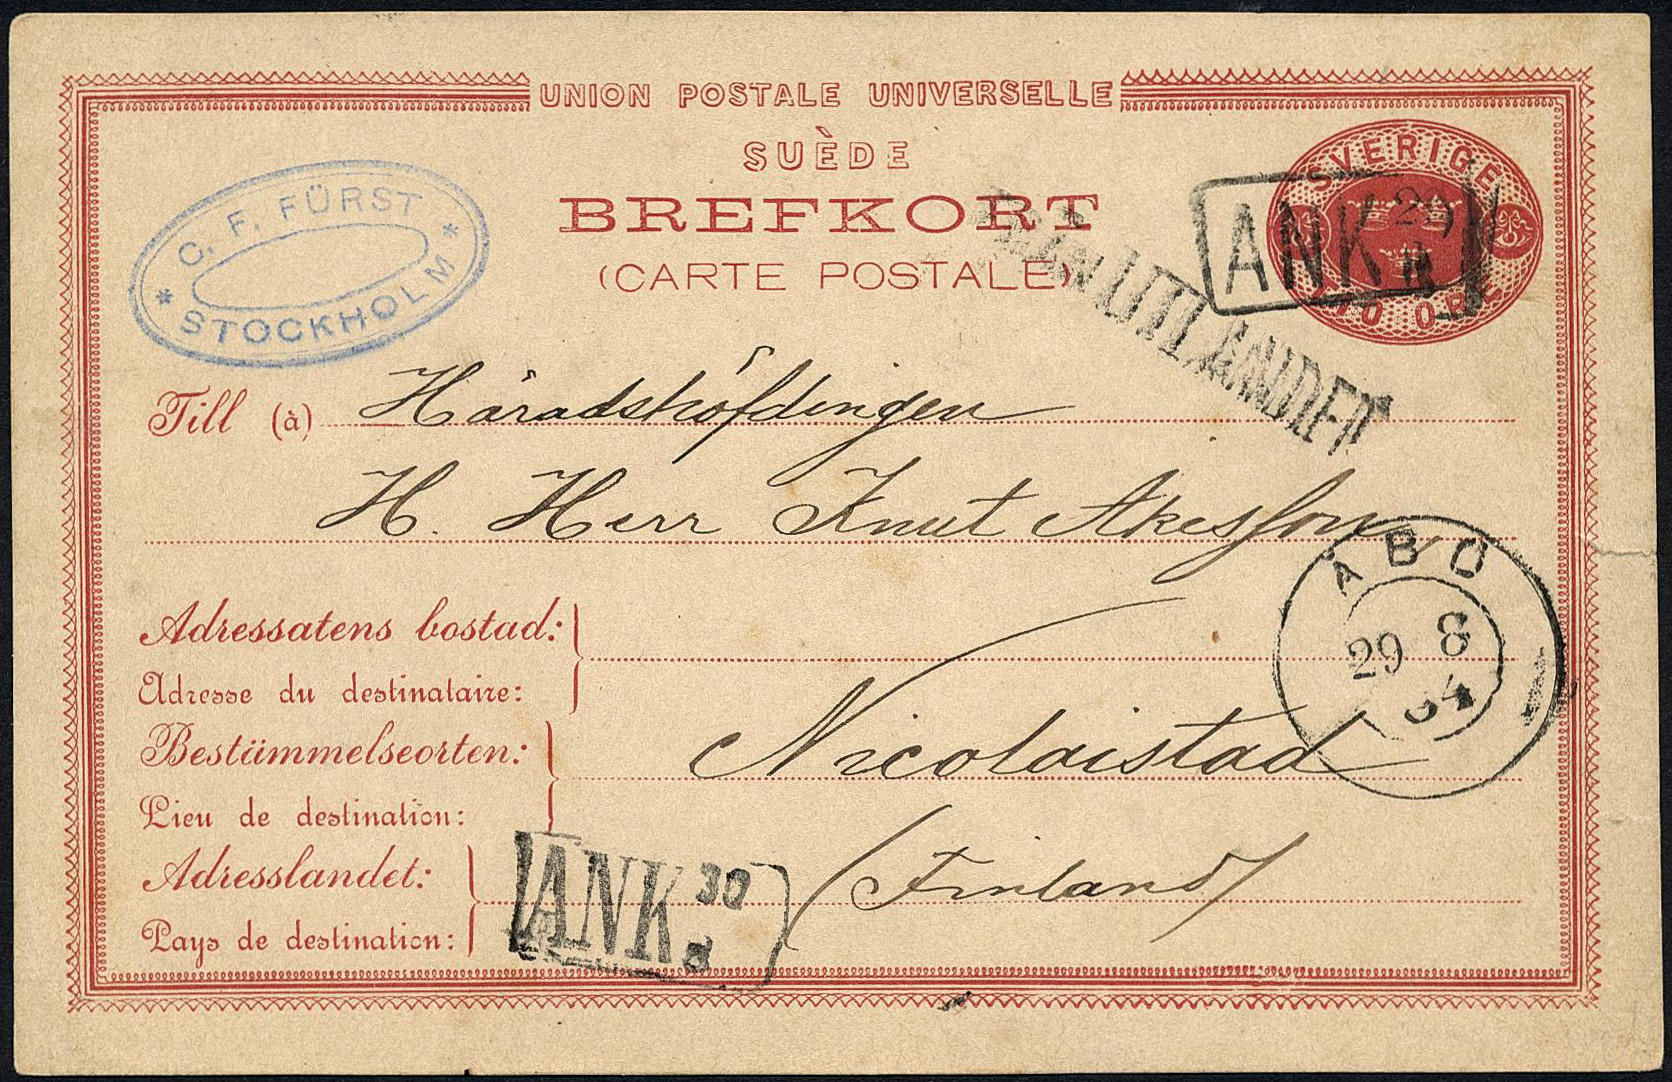 UNION POSTALE UNIVERSELLE
SUÈDE
BREFKORT
(CARTE POSTALE)
C. F. FÜRST
STOCKHOLM
SVERIGE
TIO ÖRE
ANK 29 8
FRÅN UTLANDET
Till (à) Häradshöfdingen
H. Herr Knut Åkesson
ÅBO
29 8
84
Adressatens bostad:
Adresse du destinataire:
Bestämmelseorten: Nicolaistad
Lieu de destination:
Adresslandet: (Finland)
Pays de destination:
ANK. 30
8